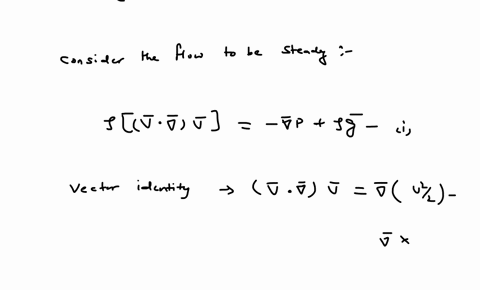 Consider the flow to be steady :-
ρ[(V̄·∇̄) V̄] = -∇̄P + ρḡ - (i)
Vector identity → (V̄·∇̄) V̄ = ∇̄(V²/2) -
V̄ ×